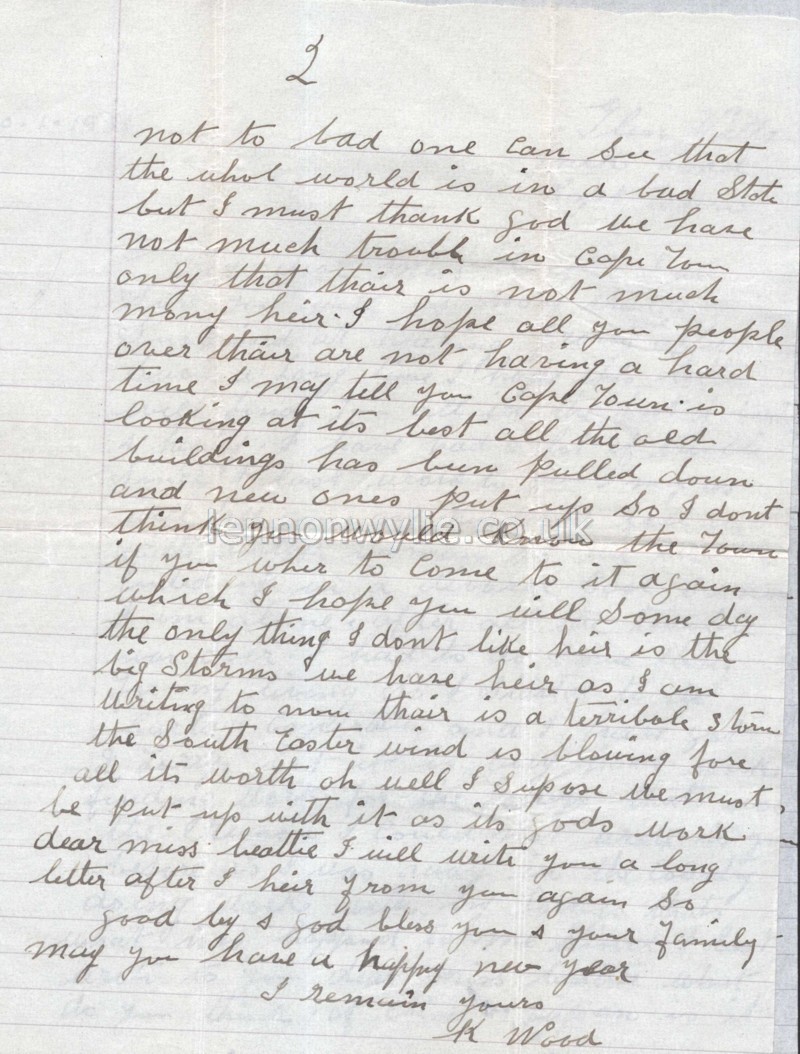 2
not to bad one can see that
the whol world is in a bad State
but I must thank god we have
not much troubl in Cape Town
only that thair is not much
mony heir. I hope all you people
over thair are not having a hard
time I may tell you Cape Town is
looking at its best all the old
buildings has been pulled down
and new ones put up So I dont
think you would know the Town
lennonwylie.co.uk
if you wher to come to it again
which I hope you will Some day
the only thing I dont like heir is the
big Storms we have heir as I am
writing to now thair is a terribole storm
the South Easter wind is blowing fore
all its worth oh well I supose we must
be put up with it as its gods work
dear miss beattie I will write you a long
letter after I heir from you again So
good by & god bless you & your family
may you have a happy new year
I remain yours
K Wood